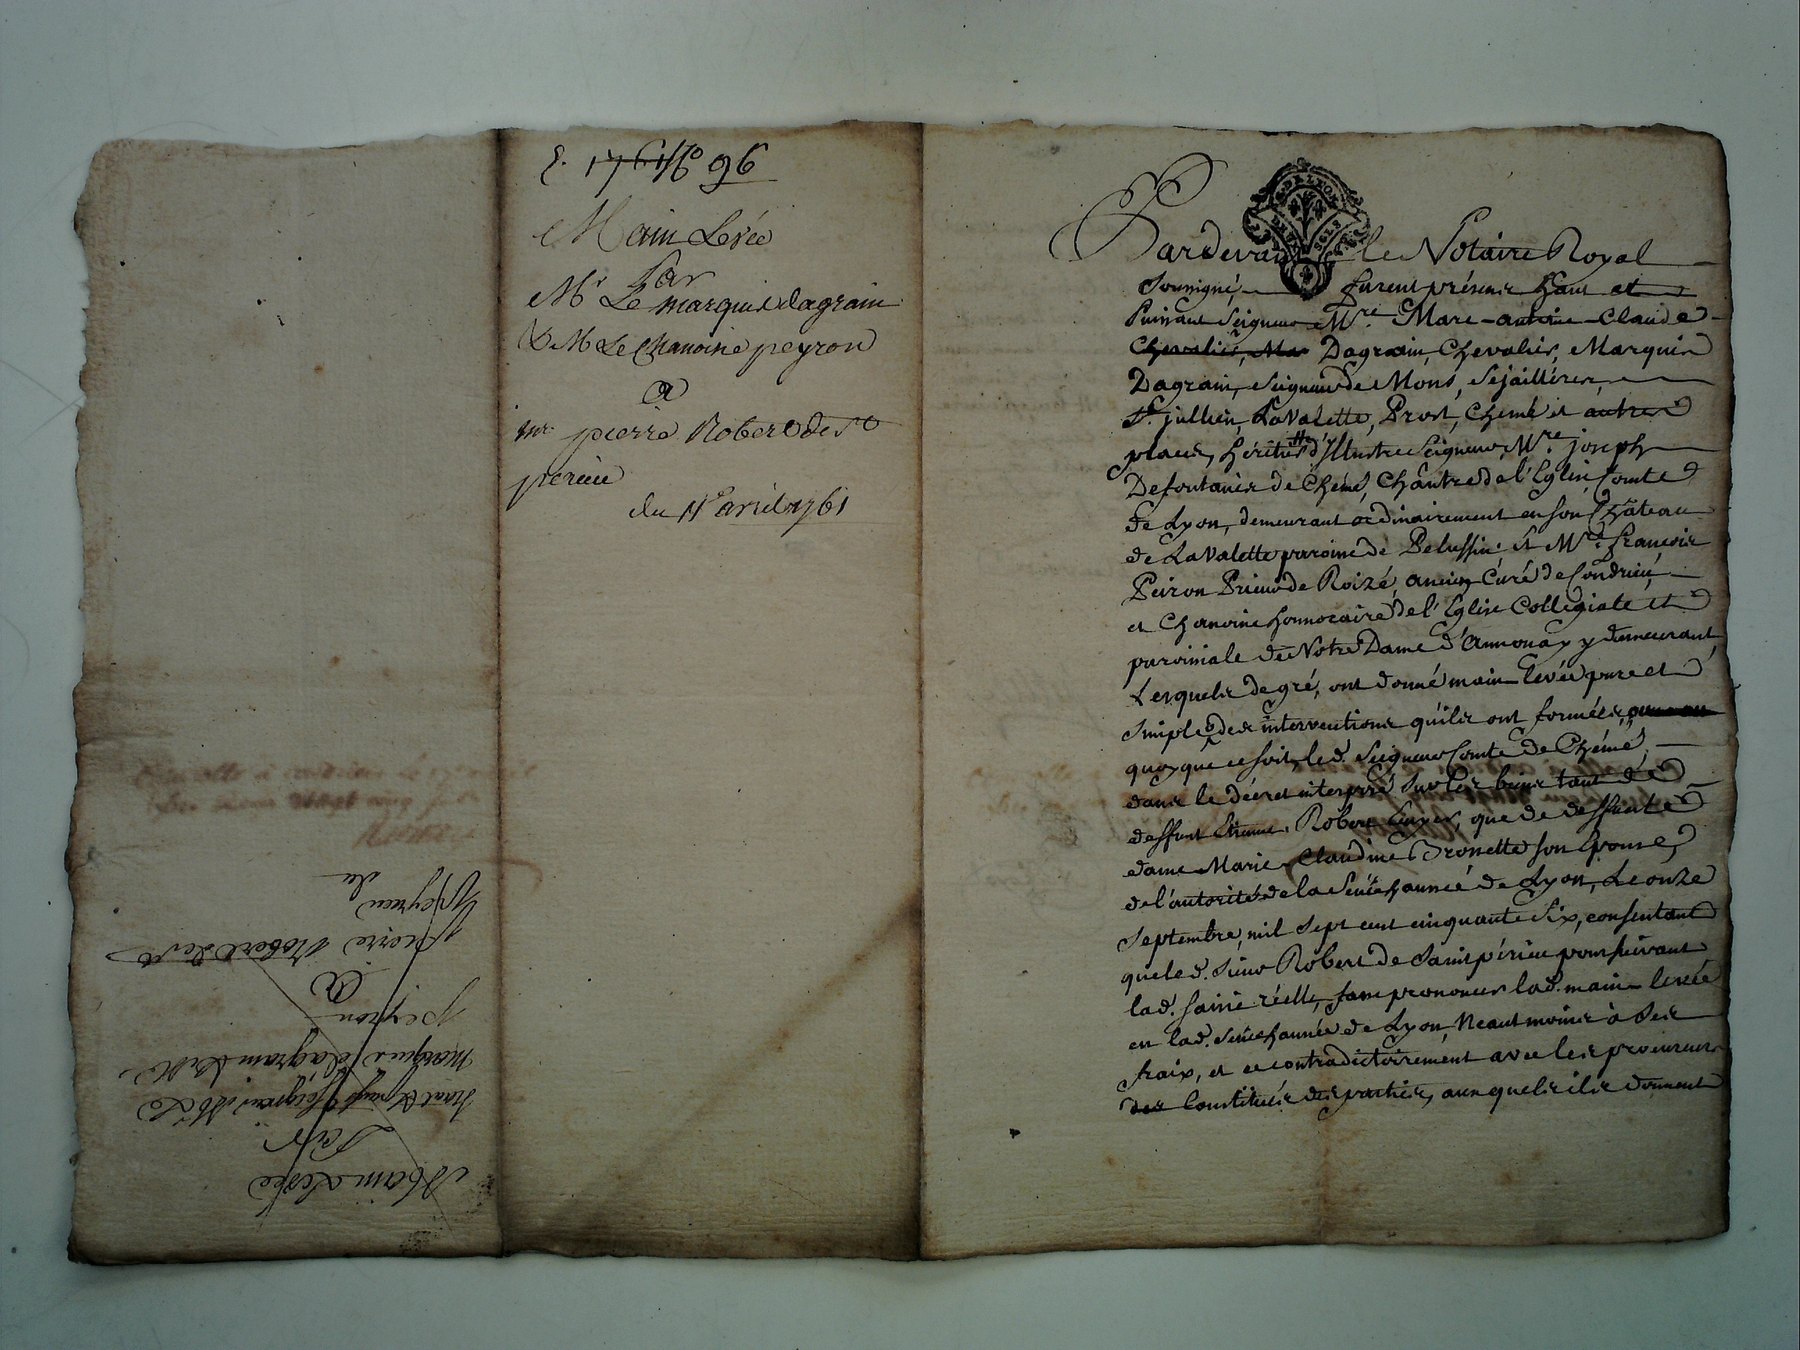 1761 No 96
Main Levée
Par
Mr Le marquis dagrain
& Mr Le Chanoine peyron
a
mr pierre Robert de St
perieu
du 11e avril 1761
Pardevant le Notaire Royal
soussigné, furent présens haut et
Puissant Seigneur Mre. Marc-antoine-Claude
Chevalier, Mar Dagrain, Chevalier, Marquis
Dagrain, Seigneur de Mons,
St. jullien, LaValette, Prost, Chemé et autres
places, héritier d'Illustre Seigneur Mre. joseph
Defontanés de Chemé, Chantre de l'Eglise Comte
de Lyon, demeurant ordinairement en son Château
de LaValette paroisse de Pelussin. Et Mre. françois
Peiron Prieur de Roizé, ancien Curé de Condrieu,
et Chanoine honnoraire de l'Eglise Collégiate et
paroissiale de Notre Dame d'annonay y demeurant,
Lesquels de gré, ont donné main-levée pure et
simple des interventions qu'ils ont formées,
quoyque ce soit, led. Seigneur Comte de Chémé,
dans le décret interposé sur les biens tant de
deffunt Etienne Robert, que de deffunte
dame Marie Claudine Bronette son Epouse,
de l'autorité de la Sénéchaussée de Lyon, Le onze
septembre, mil sept cent cinquante six, consentant
que led. sieur Robert de Saint périeu poursuivant
lad. saisie réelle, fasse prononcer lad. main-levée
en lad. sénéchaussée de Lyon, Neantmoins à ses
fraix, et ce contradictoirement avec les procureurs
des Constitués des parties, auxquels ils donnent
Main Levée
Par
haut & puiss Seigneur Mr Le
marquis dagrain & Mr
peyron
a
pierre Robert de St
peyrieu
du